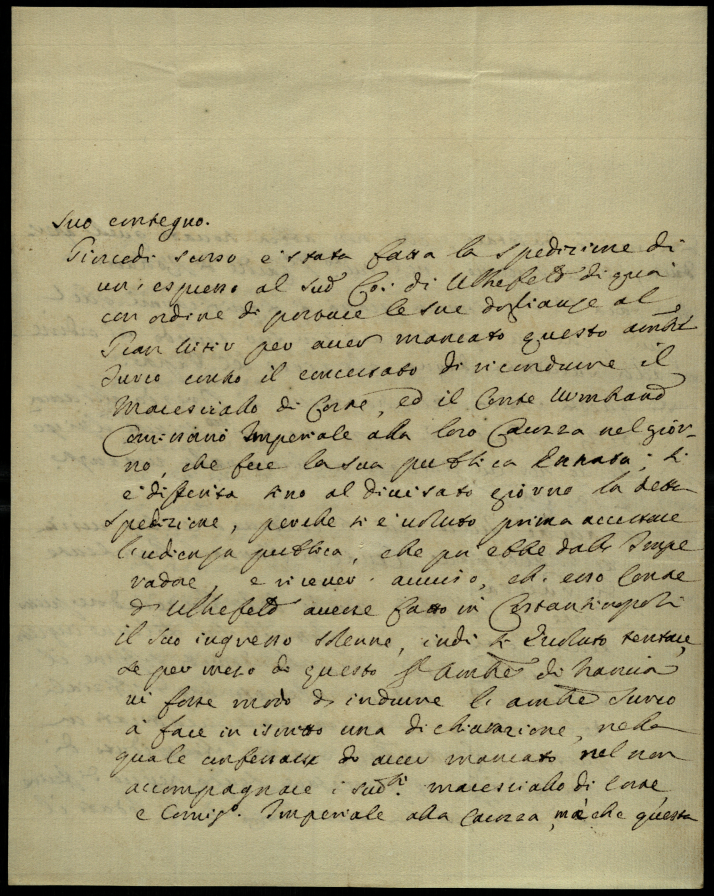 suo contegno.
Giovedì scorso è stata fatta la spedizione di
un' espresso al sud.º Co: di Ulhefeld di quà
con ordine di portare le sue doglianze al
Gran Visir per aver mancato questo Ambr
Turco contro il concertato di ricondurre il
Maresciallo di Corte, ed il Conte
Comissario Imperiale alla loro Carozza nel gior-
no, che fece la sua publica Entrata; si
è differita sino al divisato giorno la detta
spedizione, perche si è voluto prima accertare
l'udienza publica, che poi ebbe dall' Impe
radore, e ricever avviso, che esso Conte
d' Ulhefeld avesse fatto in Costantinopoli
il suo ingresso solenne, indi si è voluto tentare,
se per mezo di questo Sr Ambre di Francia
vi fosse modo d' indurre l' Ambre Turco
à fare in iscritto una dichiarazione, nella
quale confessasse di aver mancato nel non
accompagnare i sudti maresciallo di Corte
e Comisso. Imperiale alla Carozza, mà che questa